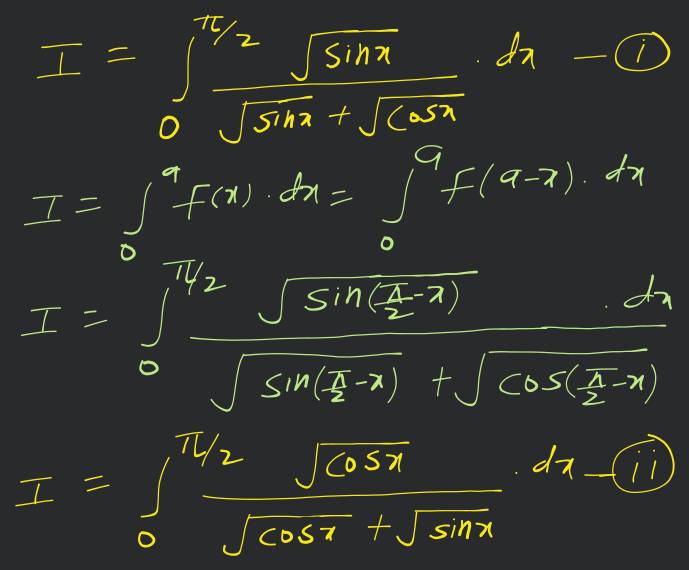 I = ∫₀^π/2 √sinx / (√sinx + √cosx) . dx — (i)
I = ∫₀^a f(x) . dx = ∫₀^a f(a-x) . dx
I = ∫₀^π/2 √sin(π/2 - x) / (√sin(π/2 - x) + √cos(π/2 - x)) . dx
I = ∫₀^π/2 √cosx / (√cosx + √sinx) . dx — (ii)